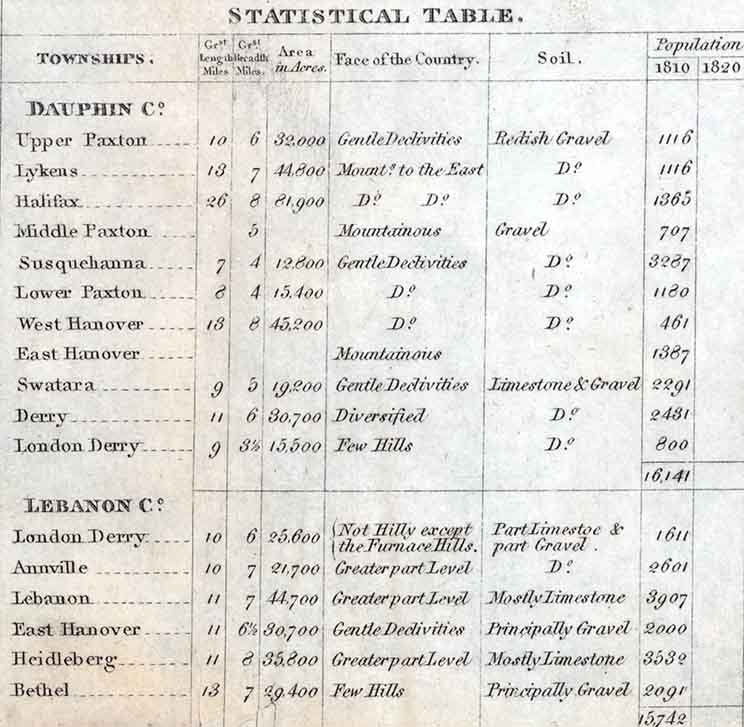 STATISTICAL TABLE.
TOWNSHIPS. Gr.st Length Miles Gr.st Breadth Miles. Area in Acres. Face of the Country. Soil. Population 1810 1820
DAUPHIN Co.
Upper Paxton 10 6 32,000 Gentle Declivities Redish Gravel 1116
Lykens 13 7 44,800 Mount.s to the East Do. 1116
Halifax 26 8 81,900 Do. Do. Do. 1365
Middle Paxton 5 Mountainous Gravel 707
Susquehanna 7 4 12,800 Gentle Declivities Do. 3287
Lower Paxton 8 4 15,400 Do. Do. 1180
West Hanover 13 8 45,200 Do. Do. 461
East Hanover Mountainous 1387
Swatara 9 5 19,200 Gentle Declivities Limestone & Gravel 2291
Derry 11 6 30,700 Diversified Do. 2431
London Derry 9 3½ 15,500 Few Hills Do. 800
16,141
LEBANON Co.
London Derry 10 6 25,600 (Not Hilly except the Furnace Hills. Part Limestoe & part Gravel. 1611
Annville 10 7 21,700 Greater part Level Do. 2601
Lebanon 11 7 44,700 Greater part Level Mostly Limestone 3907
East Hanover 11 6½ 30,700 Gentle Declivities Principally Gravel 2000
Heidleberg 11 8 35,800 Greater part Level Mostly Limestone 3532
Bethel 13 7 29,400 Few Hills Principally Gravel 2091
15,742